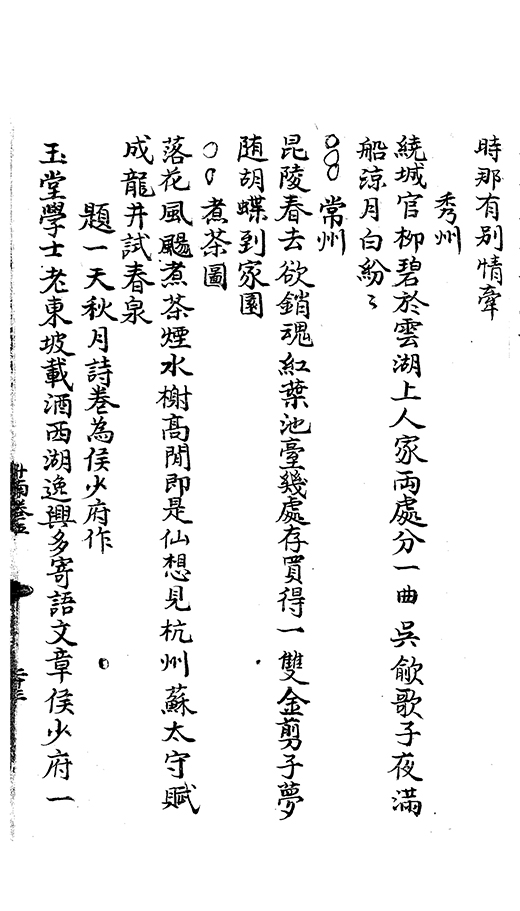 時那有别情牽
秀州
繞城官柳碧於雲湖上人家兩處分一曲吳歈歌子夜滿
船涼月白紛〻
常州
昆陵春去欲銷魂紅葉池臺幾處存買得一雙金剪子夢
随胡蝶到家園
煮茶圖
落花風颺煮茶煙水榭髙閒即是仙想見杭州蘇太守賦
成龍井試春泉
題一天秋月詩卷為侯少府作
玉堂學士老東坡載酒西湖逸興多寄語文章侯少府一